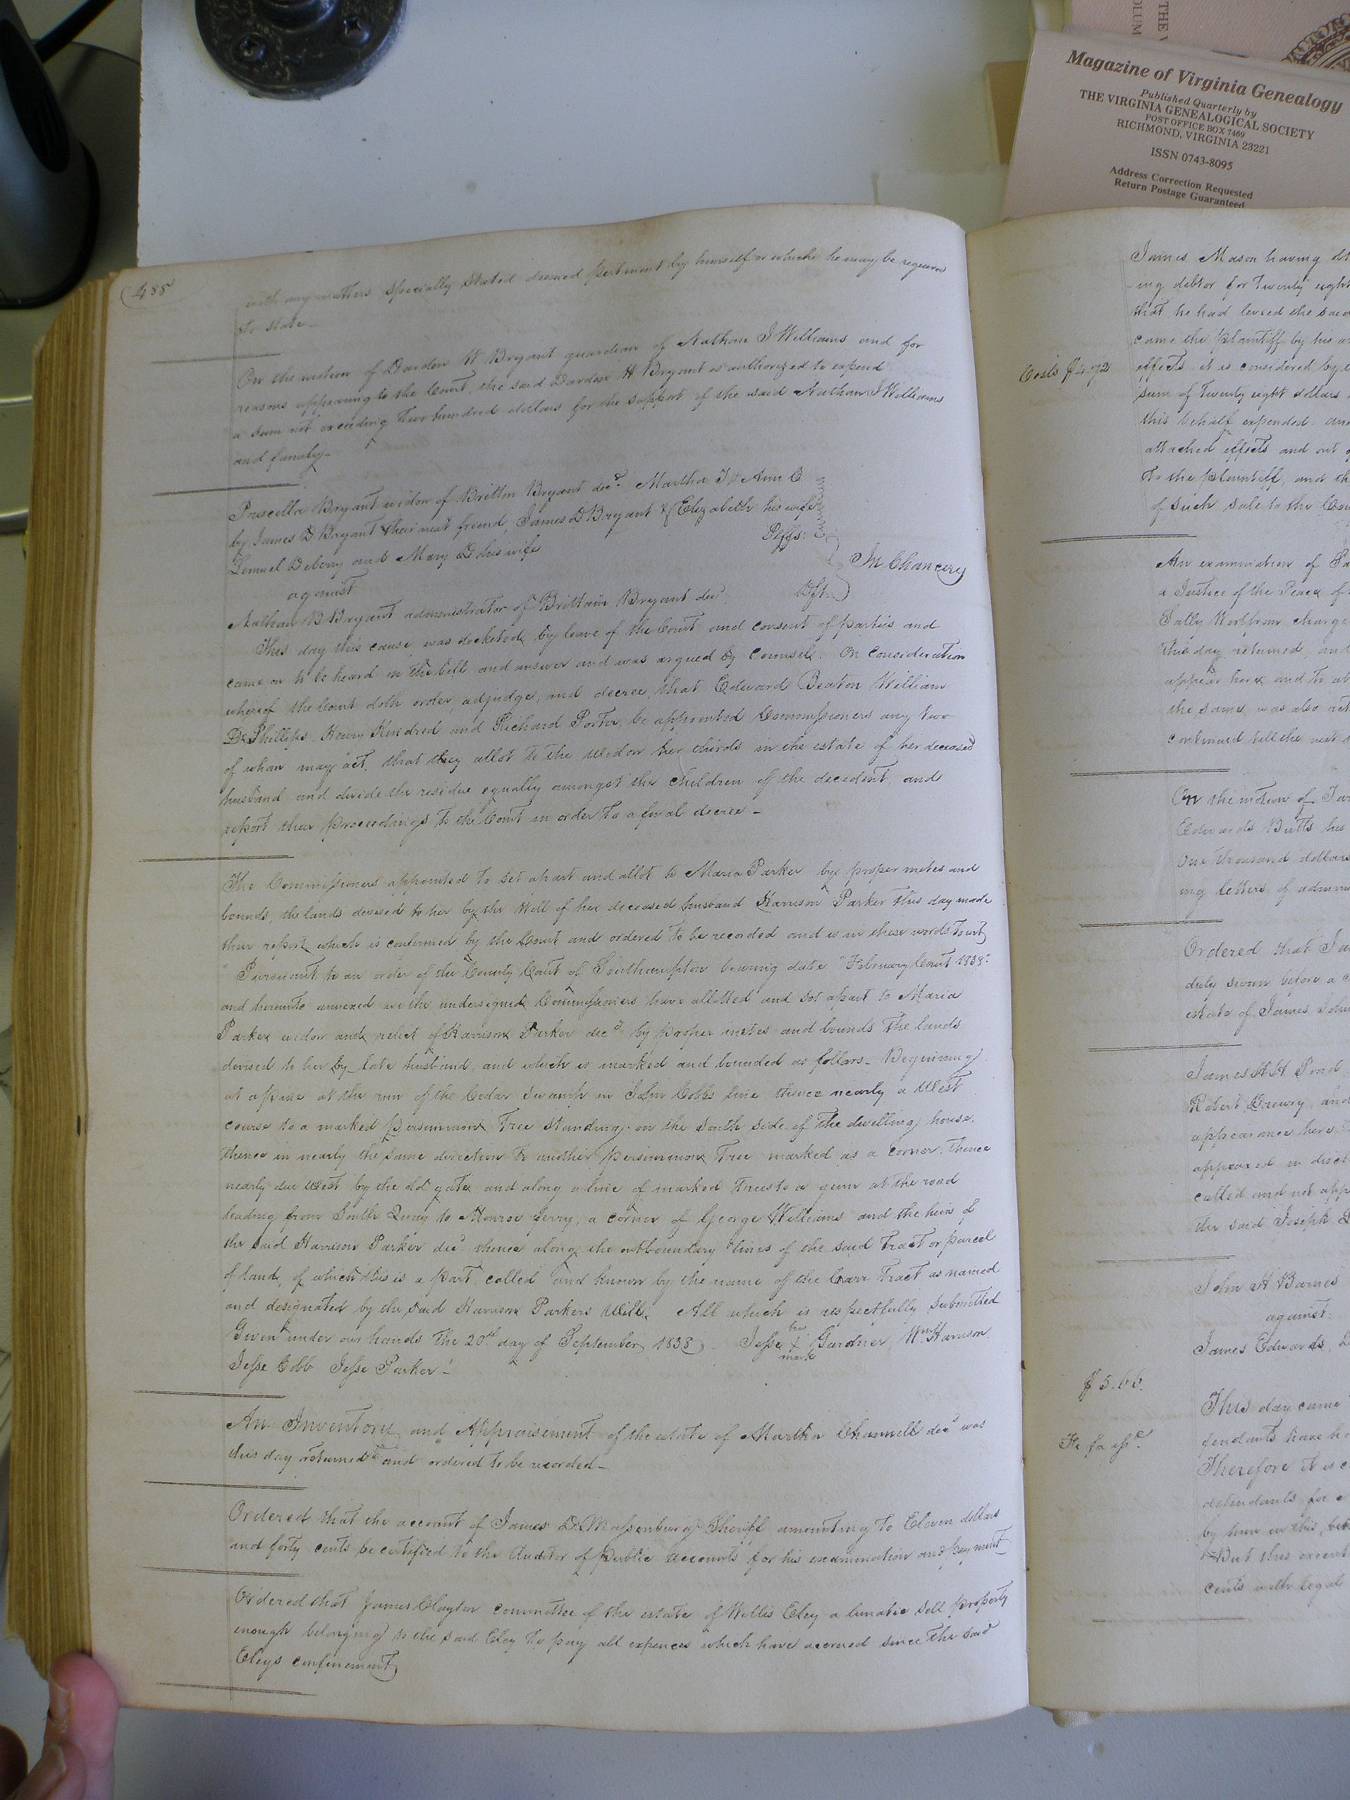 THE V
OLUM
Magazine of Virginia Genealogy
Published Quarterly by
THE VIRGINIA GENEALOGICAL SOCIETY
POST OFFICE BOX 7469
RICHMOND, VIRGINIA 23221
ISSN 0743-8095
Address Correction Requested
Return Postage Guaranteed
488
with any matters specially stated deemed pertinent by himself or which he may be required
to state
On the motion of Darden W Bryant guardian of Nathan J Williams and for
reasons appearing to the Court, the said Darden W Bryant is authorized to expend
a sum not exceeding hundred dollars for the support of the said Nathan J Williams
and family
Priscilla Bryant widow of Britton Bryant decd. Martha J & Ann C
by James D Bryant their next friend, James D Bryant & Elizabeth his wife
Lemuel Deberry and Mary D his wife Pltffs.
against In Chancery
Nathan B Bryant administrator of Brittain Bryant decd Dft
This day this cause was docketed by leave of the Court and consent of parties and
came on to be heard on the bill and answer and was argued by Counsel. On consideration
whereof the Court doth order, adjudge, and decree, that Edward Beaton William
D Phillips Henry Kindred and Richard Porter, be appointed Commissioners any two
of whom may act, that they allot to the widow her thirds in the estate of her deceased
husband and divide the residue equally amongst the children of the decedent, and
report their proceedings to the Court in order to a final decree -
The Commissioners appointed to set apart and allot to Maria Parker by proper metes and
bounds, the lands devised to her by the Will of her deceased husband Harrison Parker this day made
their report which is confirmed by the Court and ordered to be recorded and is in these words towit
" Pursuant to an order of the County Court of Southampton bearing date "February Court 1838"
and hereunto annexed we the undersigned Commissioners have allotted and set apart to Maria
Parker widow and relict of Harrison Parker decd by proper metes and bounds the lands
devised to her by late husband, and which is marked and bounded as follows - Beginning
at a pine at the run of the Cedar Swamp in John Cobbs line thence nearly a West
course to a marked persimmon Tree standing on the South side of the dwelling house,
thence in nearly the same direction to another persimmon Tree marked as a corner, thence
nearly due West by the gate and along a line of marked trees to a gum at the road
leading from South Quay to Monroe Ferry, a corner of George Williams and the heirs of
the said Harrison Parker decd thence along the outboundary lines of the said Tract or parcel
of land, of which this is a part, called and known by the name of the Carr Tract as named
and designated by the said Harrison Parkers Will. All which is respectfully submitted
Given under our hands the 20th day of September 1838. Jesse his X mark Gardner, Wm Harrison
Jesse Cobb Jesse Parker"
An Inventory and Appraisement of the estate of Martha Channell decd was
this day returned and ordered to be recorded -
Ordered that the account of James D Massenburg Sheriff amounting to Eleven dollars
and forty cents be certified to the Auditor of Public accounts for his examination and payment
Ordered that James Clayton committee of the estate of Willis Eley a lunatic sell property
enough belonging to the said Eley to pay all expences which have accrued since the said
Eleys confinement
James Mason having
ing debtor for Twenty eight
that he had levied the said
came the Plaintiff by his
Costs $4.72
effects, it is considered by
sum of Twenty eight dollars
this behalf expended and
attached effects and out
to the Plaintiff, and
of such sale to the
An examination of
a Justice of the Peace
Sally
this day returned, and
appear here and to
the same, was also
continued till the next
On the motion of
Edwards Butts his
One thousand dollars
ing letters of
Ordered that
duly sworn before a
estate of James
James H H
Robert Drewry, and
appearance here
appeared in
called and not
the said Joseph
John H Barnes
against
James Edwards,
$5.66.
This day came
fendants have
Therefore it is
defendants for
by him in this
But this
cents with legal